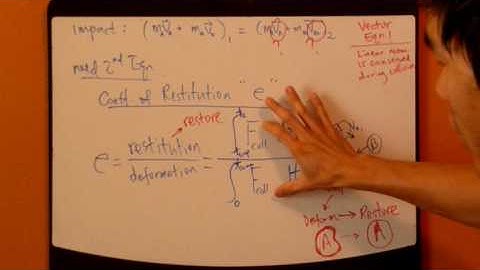 impact: (mAv̄A + mBv̄B)1 = (mAv̄A + mBv̄B)2
Vector
Eqn!
Linear mom
is conserved
during collision
need 2nd Eqn
Coeff of Restitution "e"
restore
e = restitution / deformation =
∫ Fcoll
∫ Fcoll H
B
Deform → Restore
A → A